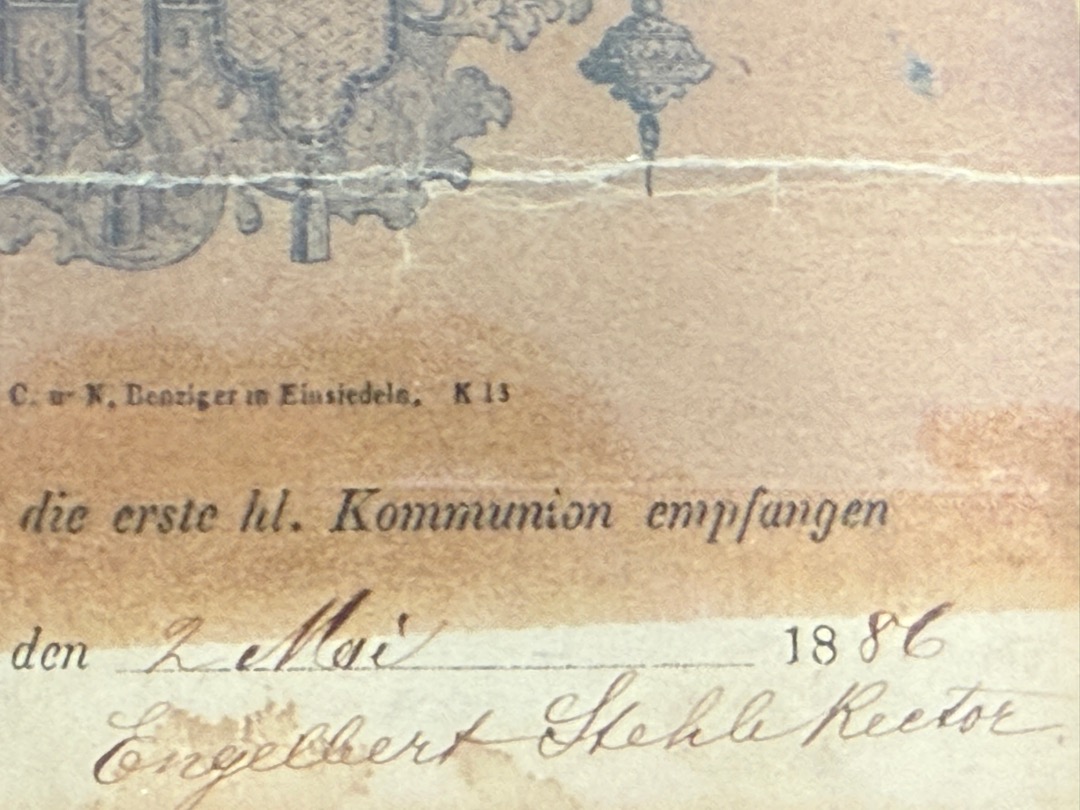 C. u. N. Benziger in Einsiedeln, K 13
die erste hl. Kommunion empfangen
den 2 Mai 1886
Engelbert Stehle Rector